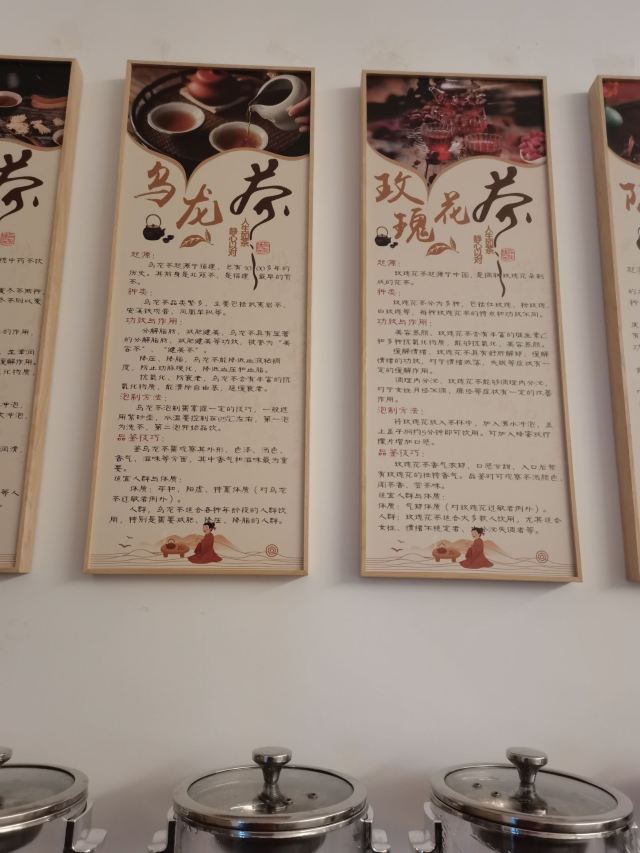 茶
乌龙茶
人生如茶
静心以对
起源:
乌龙茶起源于福建, 已有1000多年的
历史。其前身是北苑茶, 是福建最早的贡
茶。
种类:
乌龙茶品类繁多, 主要包括武夷岩茶、
安溪铁观音、凤凰单枞等。
功效与作用:
分解脂肪、减肥健美, 乌龙茶具有显著
的分解脂肪、减肥健美等功效, 被誉为“美
容茶”、“健美茶”。
降压、降脂, 乌龙茶能降低血液粘稠
度, 防止动脉硬化, 降低血压和血脂。
抗氧化、防衰老, 乌龙茶含有丰富的抗
氧化物质, 能清除自由基, 延缓衰老。
泡制方法:
乌龙茶泡制需掌握一定的技巧, 一般选
用紫砂壶, 水温要控制在95℃左右, 第一泡
为洗茶, 第二泡开始品饮。
品鉴技巧:
鉴乌龙茶需观察其外形、色泽、汤色、
香气、滋味等方面, 其中香气和滋味最为重
要。
适宜人群与体质:
体质: 平和、阳虚、特禀体质(对乌龙
茶过敏者例外)。
人群: 乌龙茶适合各种年龄段的人群饮
用, 特别是需要减肥、降压、降脂的人群。
玫瑰花茶
人生如茶
静心以对
起源:
玫瑰花茶起源于中国, 是满族玫瑰花朵制
成的花茶。
种类:
玫瑰花茶分为多种, 包括红玫瑰、粉玫瑰、
白玫瑰等, 每种玫瑰花茶的特点和功效不同。
功效与作用:
美容养颜, 玫瑰花茶含有丰富的维生素C
和多种抗氧化物质, 能够抗氧化、美容养颜。
缓解情绪, 玫瑰花茶具有舒肝解郁、缓解
情绪的功效, 对于情绪低落、失眠等症状有一
定的缓解作用。
调理内分泌, 玫瑰花茶能够调理内分泌,
对于女性月经不调、痛经等症状有一定的改善
作用。
泡制方法:
将玫瑰花放入茶杯中, 加入沸水冲泡, 盖
上盖子焖约5分钟即可饮用。可加入蜂蜜或柠
檬片增加口感。
品鉴技巧:
玫瑰花茶香气浓郁, 口感甘甜, 入口后带
有玫瑰花的独特香气。品鉴时可观察茶汤颜色、
闻茶香、尝茶味。
适宜人群与体质:
体质: 气郁体质(对玫瑰花过敏者例外)。
人群: 玫瑰花茶适合大多数人饮用, 尤其适合
女性、情绪不稳定者、内分泌失调者等。